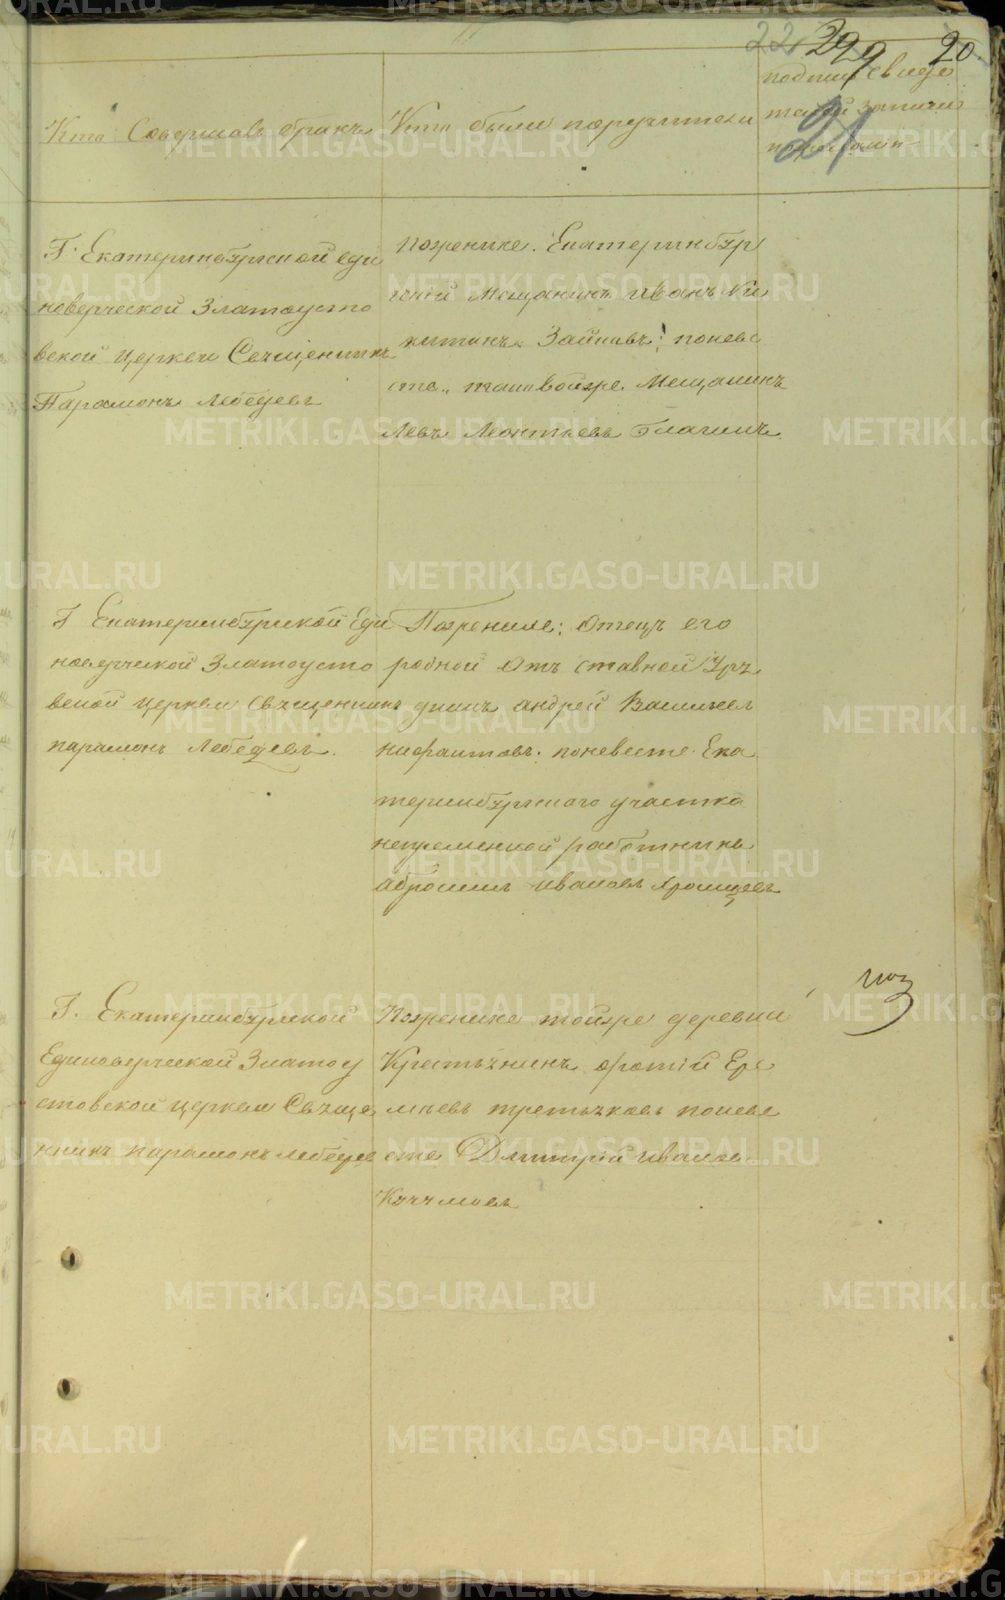 299 20
21
Кто Совершалъ бракъ
Кто были поручители
подпись свиде
телей записи
Г. Екатеринбургской еди
новерческой Златоусто
вской церкви Священникъ
Парамонъ Лебедевъ
пожениxе. Екатеринбур
гский Мещанинъ Иванъ Ни
китинъ поневе
сте Мещанинъ
Левъ Леонтьевъ
Г Екатеринбургской Еди
новерческой Златоусто
вской церкви Священникъ
парамонъ Лебедевъ
Пожениxе: Отецъ его
родной Отъ ставной Уръ
дникъ андрей Васильев
нифантовъ: поневесте Ека
теринбургского участка
непременной работника
абросимъ ивановъ
Г. Екатеринбургской
Единоверческой Златоу
стовской церкви Свяще
нникъ парамонъ лебедев
Пожениxе тойже деревни
Крестьянинъ фотий Ере
меевъ третьяковъ поневе
сте Дмитрий иванов
METRIKI.GASO-URAL.RU